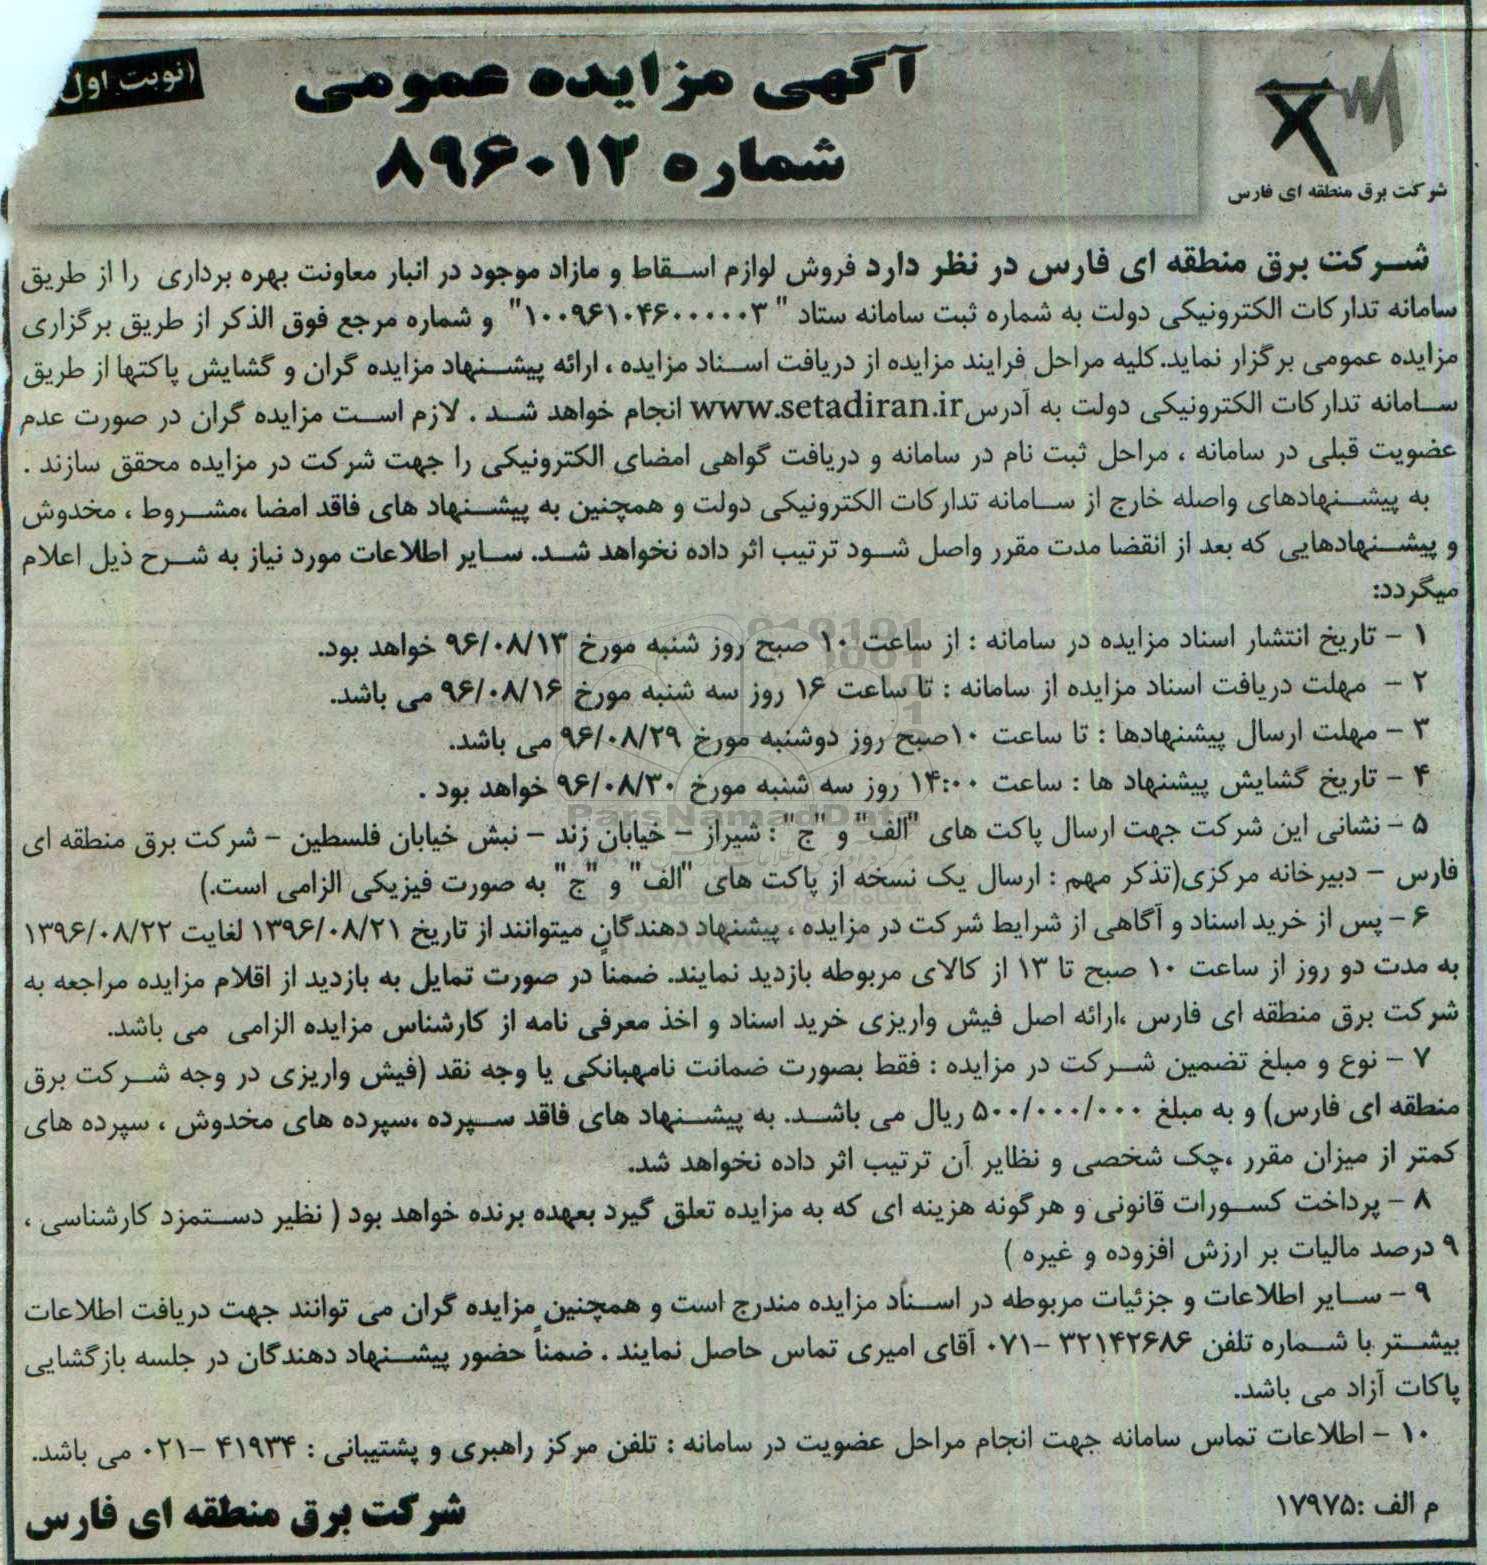 (نوبت اول
آگهی مزایده عمومی
شماره ۸۹۶۰۱۲
شرکت برق منطقه ای فارس
شرکت برق منطقه ای فارس در نظر دارد فروش لوازم اسقاط و مازاد موجود در انبار معاونت بهره برداری را از طریق
سامانه تدارکات الکترونیکی دولت به شماره ثبت سامانه ستاد " ۱۰۰۹۶۱۰۴۶۰۰۰۰۰۳" و شماره مرجع فوق الذکر از طریق برگزاری
مزایده عمومی برگزار نماید.کلیه مراحل فرایند مزایده از دریافت اسناد مزایده ، ارائه پیشنهاد مزایده گران و گشایش پاکتها از طریق
سامانه تدارکات الکترونیکی دولت به آدرس www.setadiran.ir انجام خواهد شد . لازم است مزایده گران در صورت عدم
عضویت قبلی در سامانه ، مراحل ثبت نام در سامانه و دریافت گواهی امضای الکترونیکی را جهت شرکت در مزایده محقق سازند .
به پیشنهادهای واصله خارج از سامانه تدارکات الکترونیکی دولت و همچنین به پیشنهاد های فاقد امضا ،مشروط ، مخدوش
و پیشنهادهایی که بعد از انقضا مدت مقرر واصل شود ترتیب اثر داده نخواهد شد. سایر اطلاعات مورد نیاز به شرح ذیل اعلام
میگردد:
۱ - تاریخ انتشار اسناد مزایده در سامانه : از ساعت ۱۰ صبح روز شنبه مورخ ۹۶/۰۸/۱۳ خواهد بود.
۲ - مهلت دریافت اسناد مزایده از سامانه : تا ساعت ۱۶ روز سه شنبه مورخ ۹۶/۰۸/۱۶ می باشد.
۳ - مهلت ارسال پیشنهادها : تا ساعت ۱۰صبح روز دوشنبه مورخ ۹۶/۰۸/۲۹ می باشد.
۴ - تاریخ گشایش پیشنهاد ها : ساعت ۱۴:۰۰ روز سه شنبه مورخ ۹۶/۰۸/۳۰ خواهد بود .
ParsNamadData
۵ - نشانی این شرکت جهت ارسال پاکت های "الف" و "ج" : شیراز - خیابان زند - نبش خیابان فلسطین - شرکت برق منطقه ای
فارس - دبیرخانه مرکزی(تذکر مهم : ارسال یک نسخه از پاکت های "الف" و "ج" به صورت فیزیکی الزامی است.)
۶ - پس از خرید اسناد و آگاهی از شرایط شرکت در مزایده ، پیشنهاد دهندگان میتوانند از تاریخ ۱۳۹۶/۰۸/۲۱ لغایت ۱۳۹۶/۰۸/۲۲
به مدت دو روز از ساعت ۱۰ صبح تا ۱۳ از کالای مربوطه بازدید نمایند. ضمناً در صورت تمایل به بازدید از اقلام مزایده مراجعه به
شرکت برق منطقه ای فارس ،ارائه اصل فیش واریزی خرید اسناد و اخذ معرفی نامه از کارشناس مزایده الزامی می باشد.
۷ - نوع و مبلغ تضمین شرکت در مزایده : فقط بصورت ضمانت نامهبانکی یا وجه نقد (فیش واریزی در وجه شرکت برق
منطقه ای فارس) و به مبلغ ۵۰۰/۰۰۰/۰۰۰ ریال می باشد. به پیشنهاد های فاقد سپرده ،سپرده های مخدوش ، سپرده های
کمتر از میزان مقرر ،چک شخصی و نظایر آن ترتیب اثر داده نخواهد شد.
۸ - پرداخت کسورات قانونی و هرگونه هزینه ای که به مزایده تعلق گیرد بعهده برنده خواهد بود ( نظیر دستمزد کارشناسی ،
۹ درصد مالیات بر ارزش افزوده و غیره )
۹ - سایر اطلاعات و جزئیات مربوطه در اسناد مزایده مندرج است و همچنین مزایده گران می توانند جهت دریافت اطلاعات
بیشتر با شماره تلفن ۳۲۱۴۲۶۸۶ -۰۷۱ آقای امیری تماس حاصل نمایند . ضمناً حضور پیشنهاد دهندگان در جلسه بازگشایی
پاکات آزاد می باشد.
۱۰ - اطلاعات تماس سامانه جهت انجام مراحل عضویت در سامانه : تلفن مرکز راهبری و پشتیبانی : ۴۱۹۳۴ -۰۲۱ می باشد.
م الف :۱۷۹۷۵
شرکت برق منطقه ای فارس